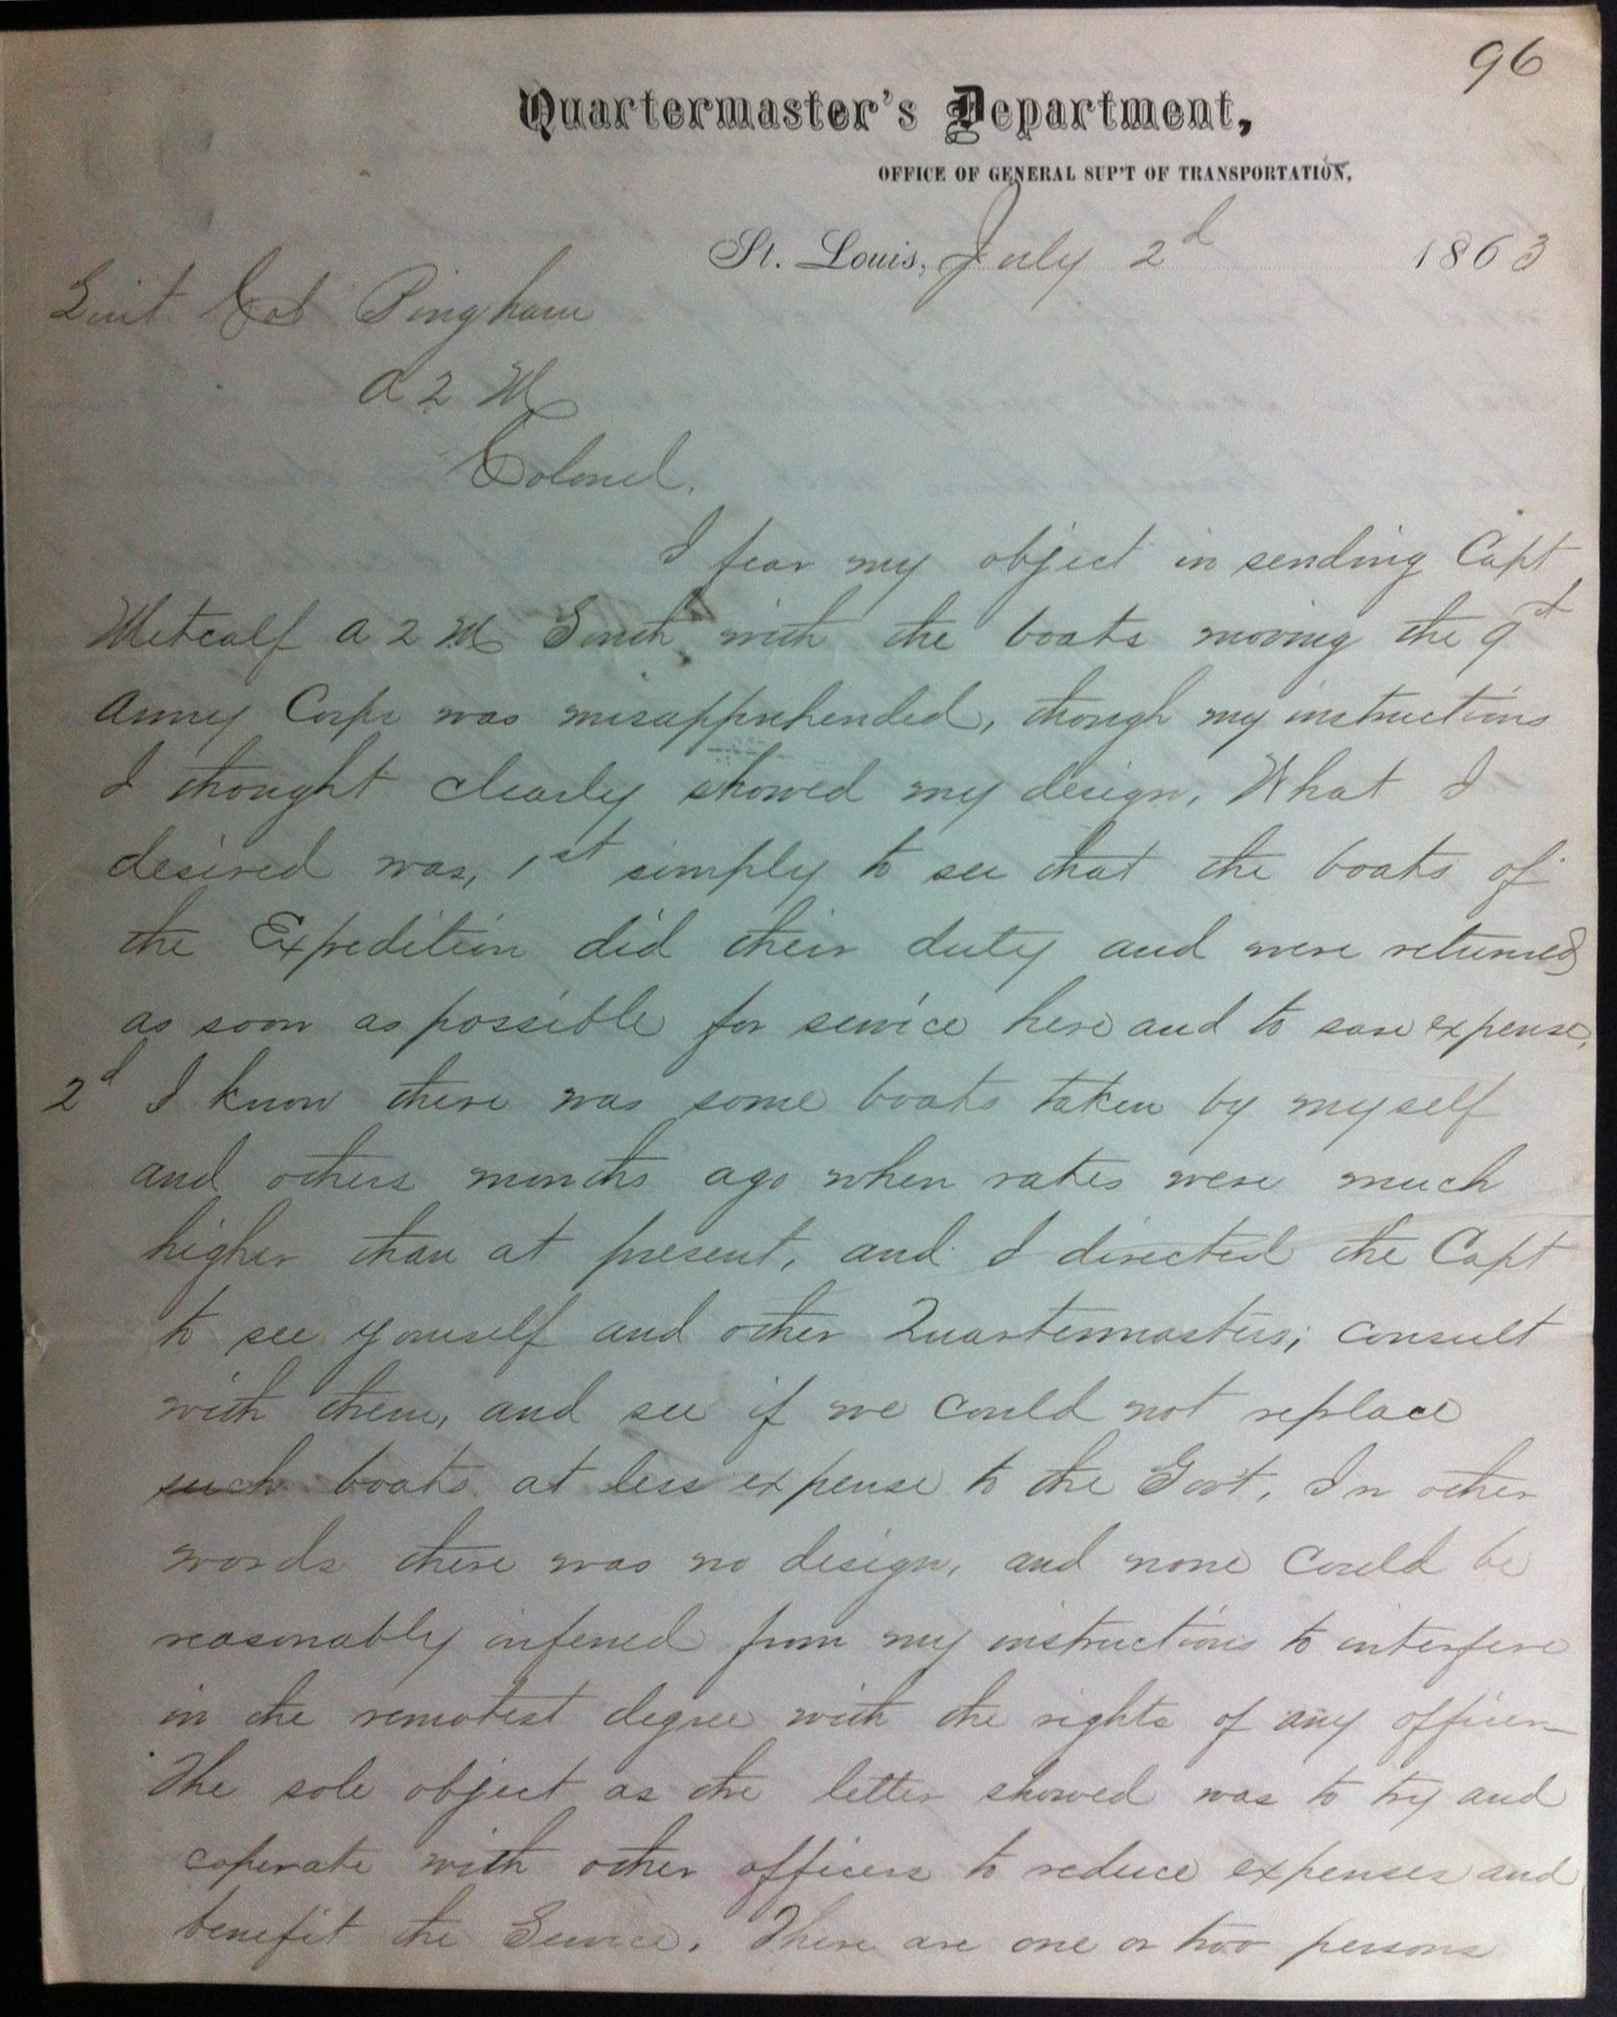 96
Quartermaster's Department,
OFFICE OF GENERAL SUP'T OF TRANSPORTATION.
St. Louis, July 2d 1863
Lieut Col Bingham
A Q M
Colonel.
I fear my object in sending Capt
Metcalf A Q M South with the boats moving the 9th
Army Corps was misapprehended, though my instructions
I thought clearly showed my design. What I
desired was, 1st simply to see that the boats of
the Expedition did their duty and were returned
as soon as possible for service here and to save expense.
2d I know there was some boats taken by myself
and others months ago when rates were much
higher than at present, and I directed the Capt
to see yourself and other Quartermasters; consult
with them, and see if we could not replace
such boats at less expense to the Gov't, In other
words there was no design, and none could be
reasonably infered from my instructions to interfere
in the remotest degree with the rights of any officer—
The sole object as the letter showed was to try and
coperate with other officers to reduce expenses and
benefit the Service. There are one or two persons